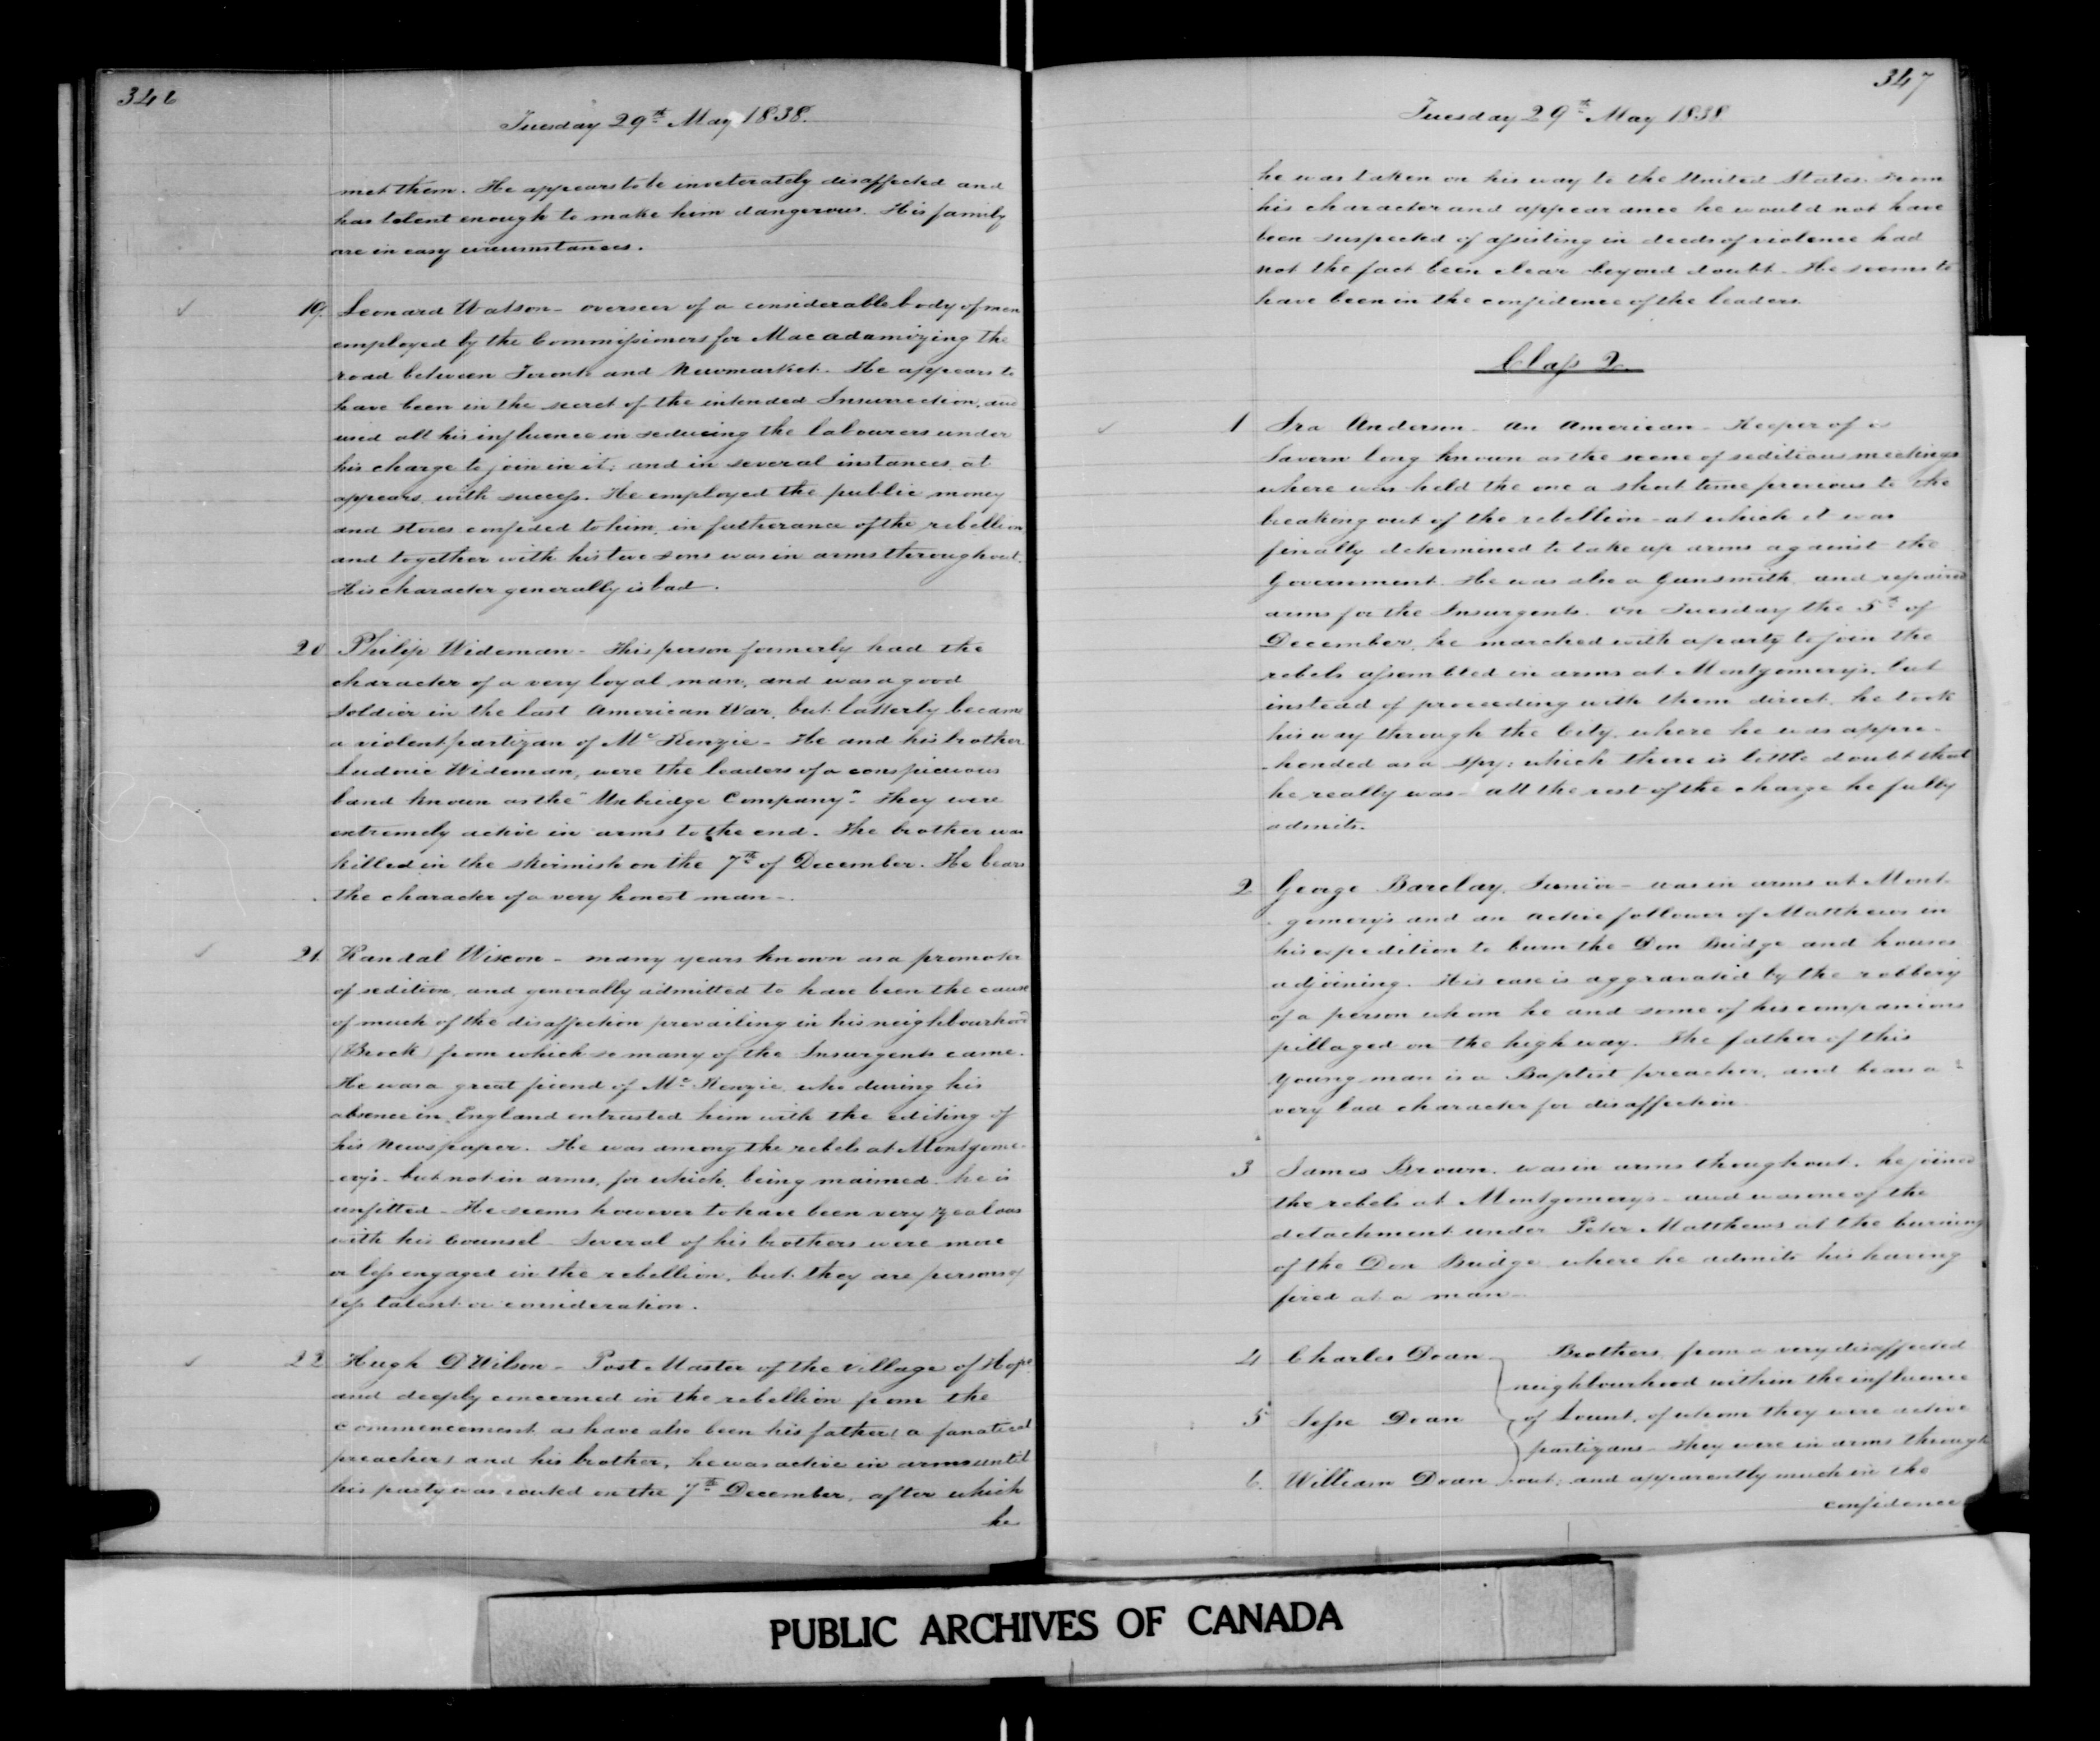 346
Tuesday 29th May 1838.
met them. He appears to be inveterately disaffected and
has talent enough to make him dangerous. His family
are in easy circumstances.
19. Leonard Watson - overseer of a considerable body of men
employed by the Commissioners for Macadamizing the
road between Toronto and Newmarket. He appears to
have been in the secret of the intended Insurrection, and
used all his influence in seducing the labourers under
his charge to join in it; and in several instances, at
appears, with success. He employed the public money
and stores confided to him, in furtherance of the rebellion
and together with his two sons was in arms throughout.
His character generally is bad.
20 Philip Wideman - This person formerly had the
character of a very loyal man, and was a good
soldier in the last American War, but latterly became
a violent partizan of Mc Kenzie - He and his brother
Ludovic Wideman, were the leaders of a conspicuous
band known as the "Uxbridge Company". They were
extremely active in arms to the end. The brother was
killed in the skirmish on the 7th of December. He bears
the character of a very honest man -.
21. Randal Wixon - many years known as a promoter
of sedition, and generally admitted to have been the cause
of much of the disaffection prevailing in his neighbourhood
(Brock) from which so many of the Insurgents came.
He was a great friend of Mc Kenzie, who during his
absence in England entrusted him with the editing of
his Newspaper. He was among the rebels at Montgome-
-ery's - but not in arms, for which, being maimed he is
unfitted - He seems however to have been very zealous
with his Counsel - Several of his brothers were more
or less engaged in the rebellion, but they are persons of
less talent or consideration.
22 Hugh D Wilson - Post Master of the Village of Hope
and deeply concerned in the rebellion from the
commencement as have also been his father (a fanatical
preacher) and his brother, he was active in arms until
his party was routed on the 7th December, after which
he
347
Tuesday 29th May 1838
he was taken on his way to the United States. From
his character and appearance he would not have
been suspected of assisting in deeds of violence had
not the fact been clear beyond doubt - He seems to
have been in the confidence of the leaders.
Class 2.
1 Ira Anderson - An American - Keeper of a
Tavern long known as the scene of seditious meetings
where was held the one a short time previous to the
breaking out of the rebellion - at which it was
finally determined to take up arms against the
Government. He was also a Gunsmith, and repaired
arms for the Insurgents. On Tuesday the 5th of
December, he marched with a party to join the
rebels assembled in arms at Montgomery's, but
instead of proceeding with them direct, he took
his way through the City, where he was appre-
-hended as a spy: which there is little doubt that
he really was - all the rest of the charge he fully
admits.
2 George Barclay, Junior - was in arms at Mont-
-gomery's and an active follower of Matthews in
his expedition to burn the Don Bridge and houses
adjoining. His case is aggravated by the robbery
of a person whom he and some of his companions
pillaged on the high way. The father of this
young man is a Baptist preacher, and bears a
very bad character for disaffection.
3 James Brown, was in arms thoughout. he joined
the rebels at Montgomerys - and was one of the
detachment under Peter Matthews at the burning
of the Don Bridge where he admits his having
fired at a man -
4 Charles Doan Brothers, from a very disaffected
neighbourhood within the influence
5 Jesse Doan of Lount, of whom they were active
partizans - They were in arms through
6. William Doan out; and apparently much in the
confidence
PUBLIC ARCHIVES OF CANADA